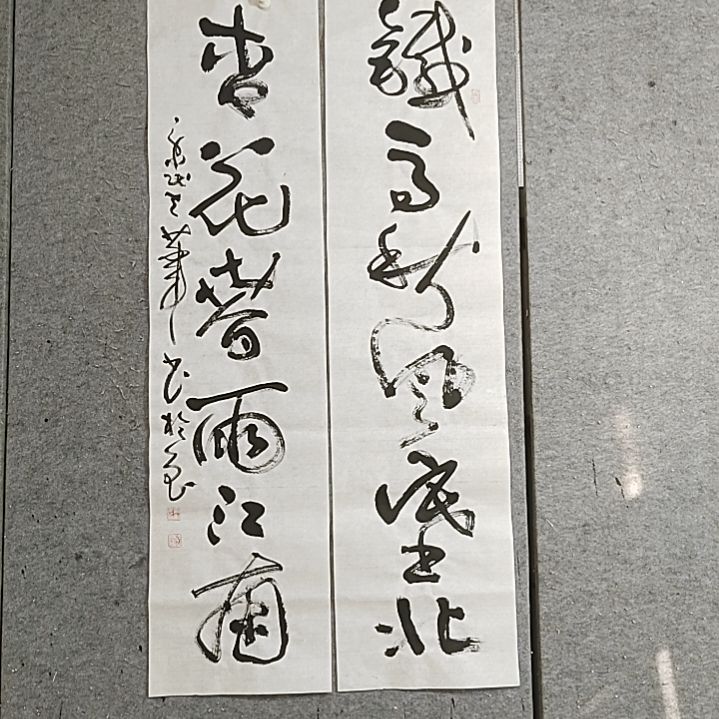 鐵馬秋風塞北
杏花春雨江南
書於